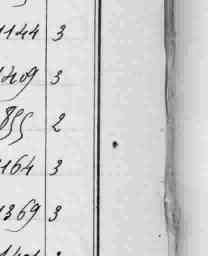 1144 3
1409 3
855 2
1164 3
1369 3